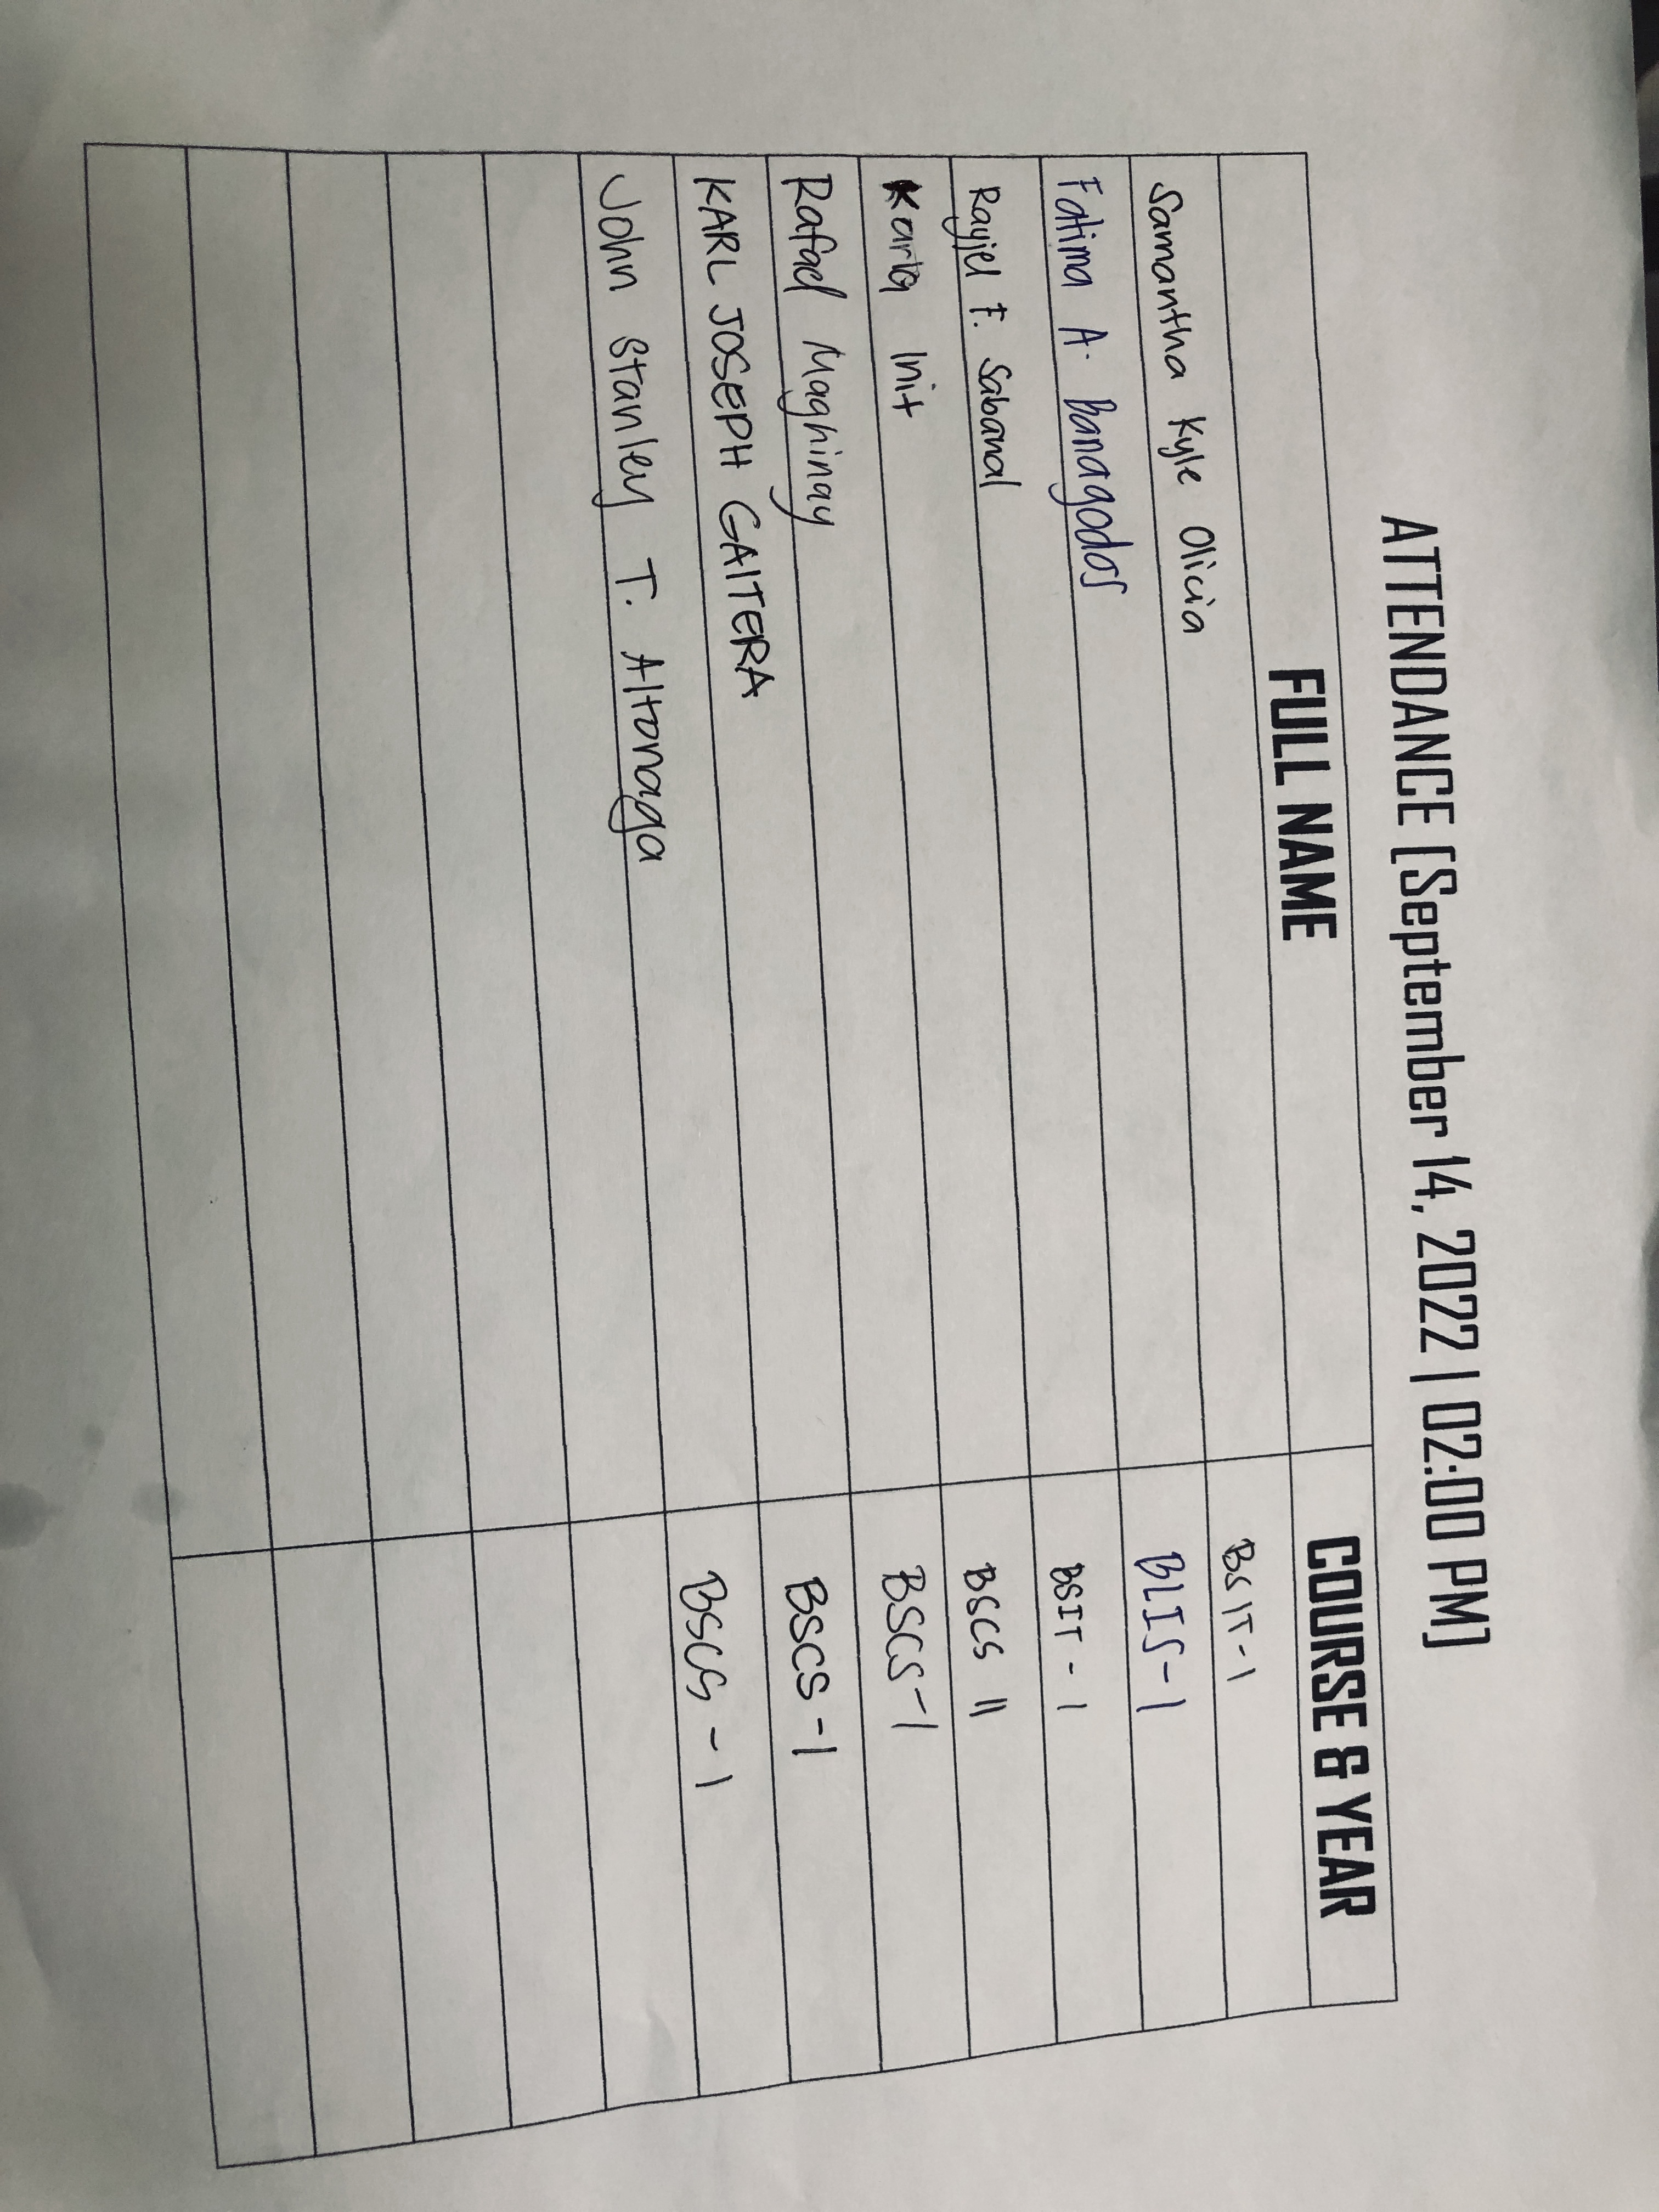 ATTENDANCE [September 14, 2022 | 02:00 PM]
FULL NAME COURSE & YEAR
Samantha Kyle Olicia BSIT-1
Fatima A. Banagodos BLIS-1
Rayjel F. Sabanal BSIT - 1
Karla Init BSCS II
Rafael Maghinay BSCS-1
KARL JOSEPH GAITERA BSCS -1
John Stanley T. Altonaga BSCS - 1